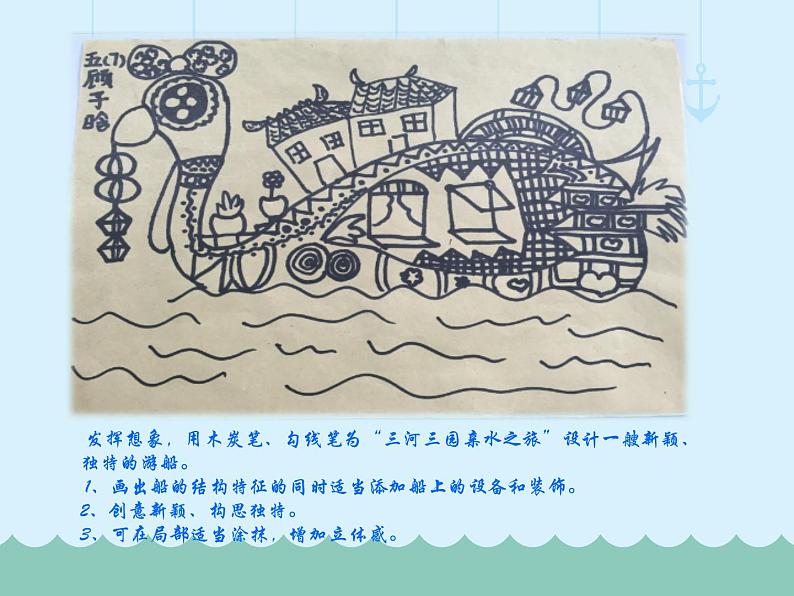 五(7)
顾子晗
发挥想象，用木炭笔、勾线笔为“三河三园亲水之旅”设计一艘新颖、
独特的游船。
1、画出船的结构特征的同时适当添加船上的设备和装饰。
2、创意新颖、构思独特。
3、可在局部适当涂抹，增加立体感。